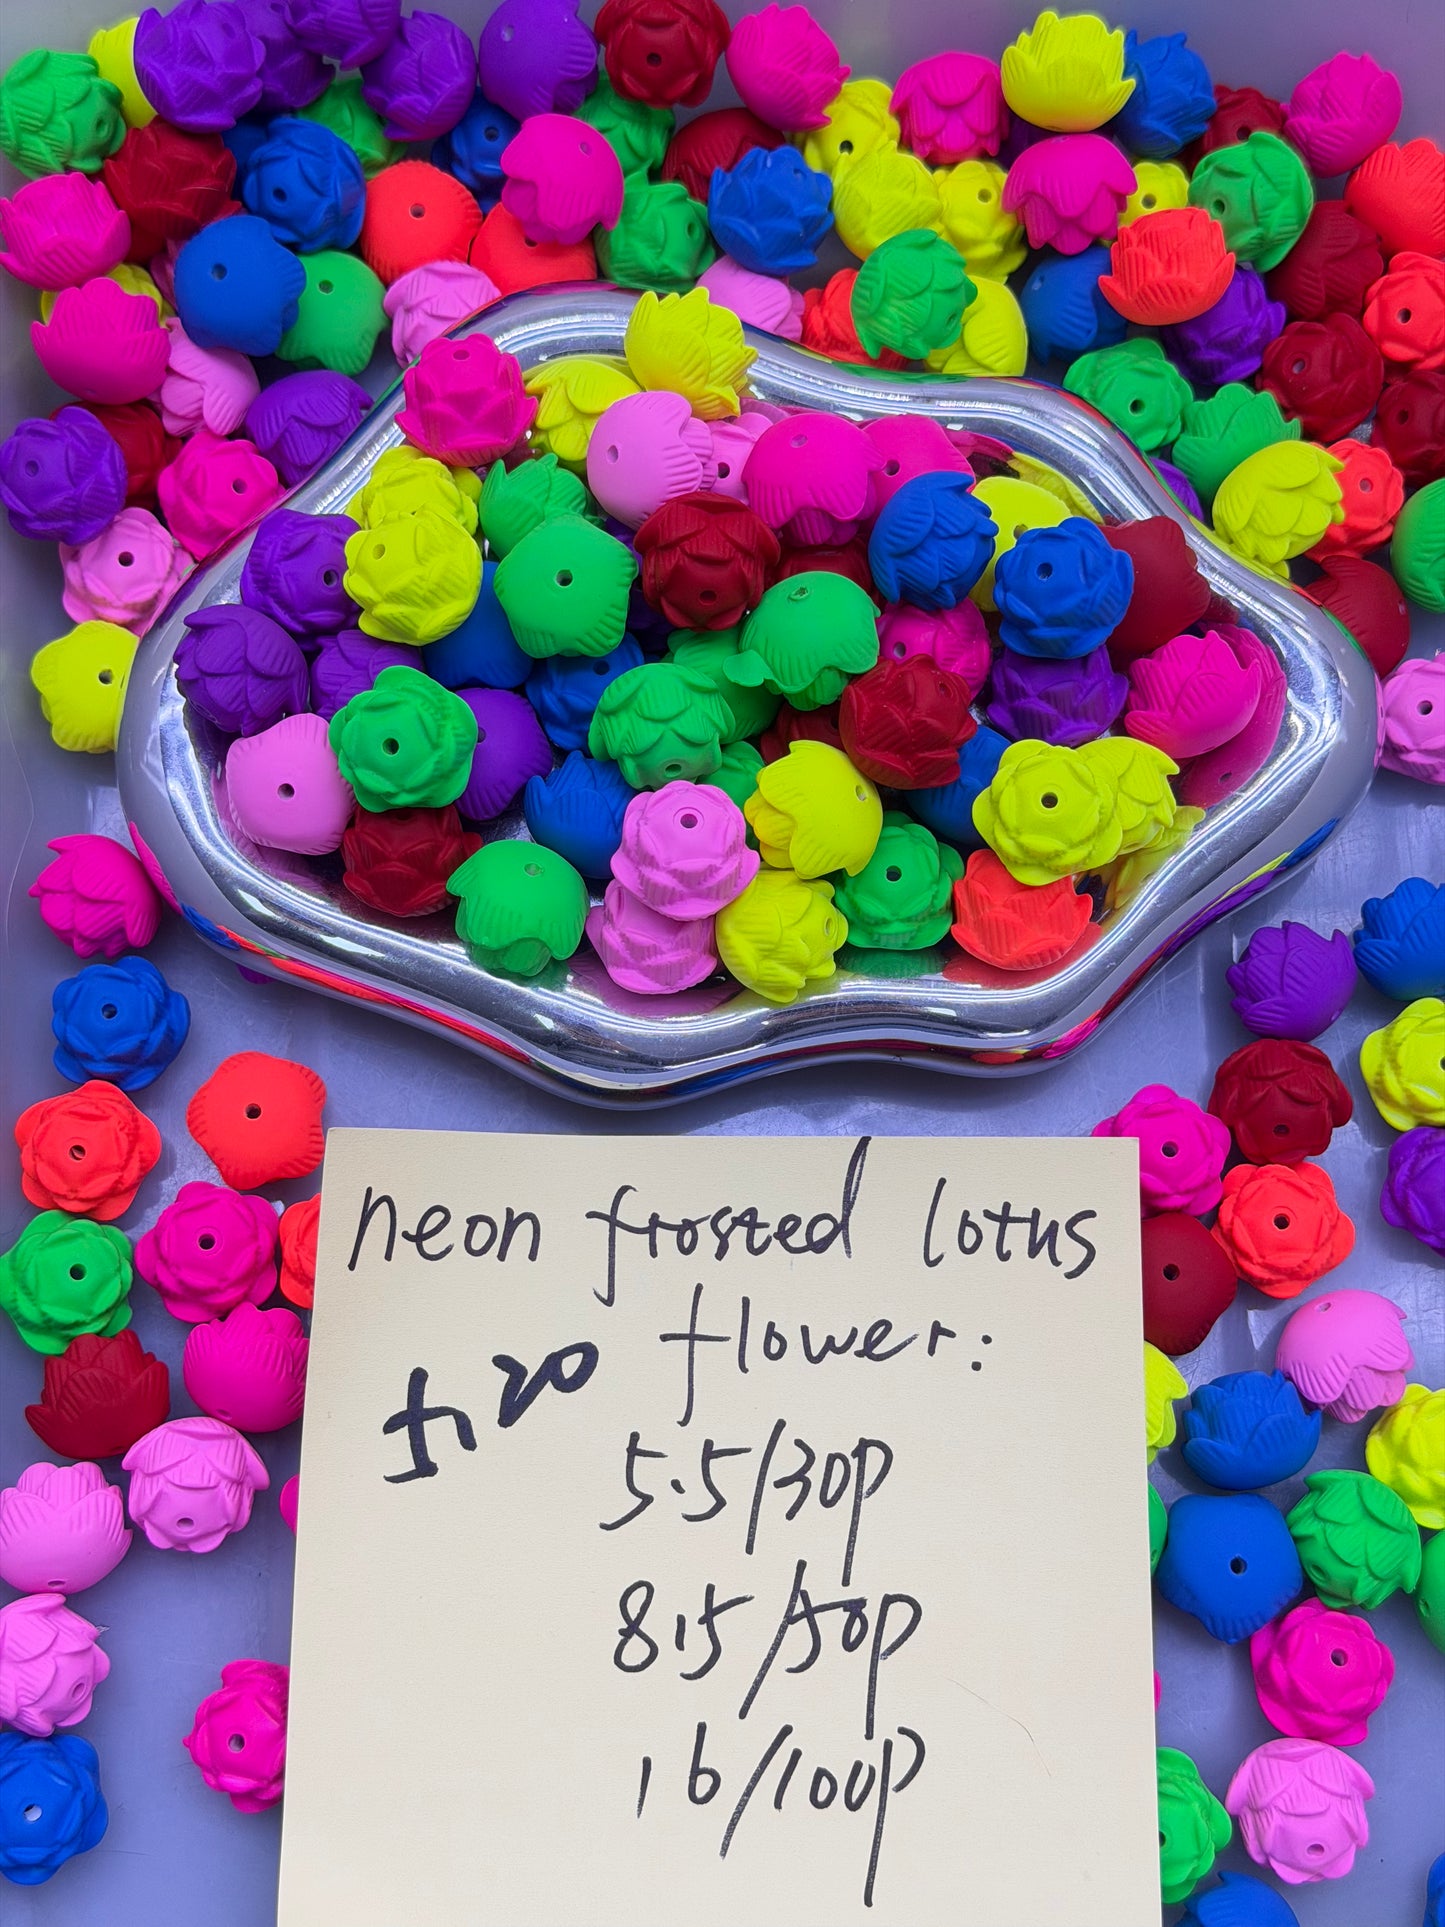 neon frosted lotus
flower:
5.5/30p
8.5/50p
16/100p